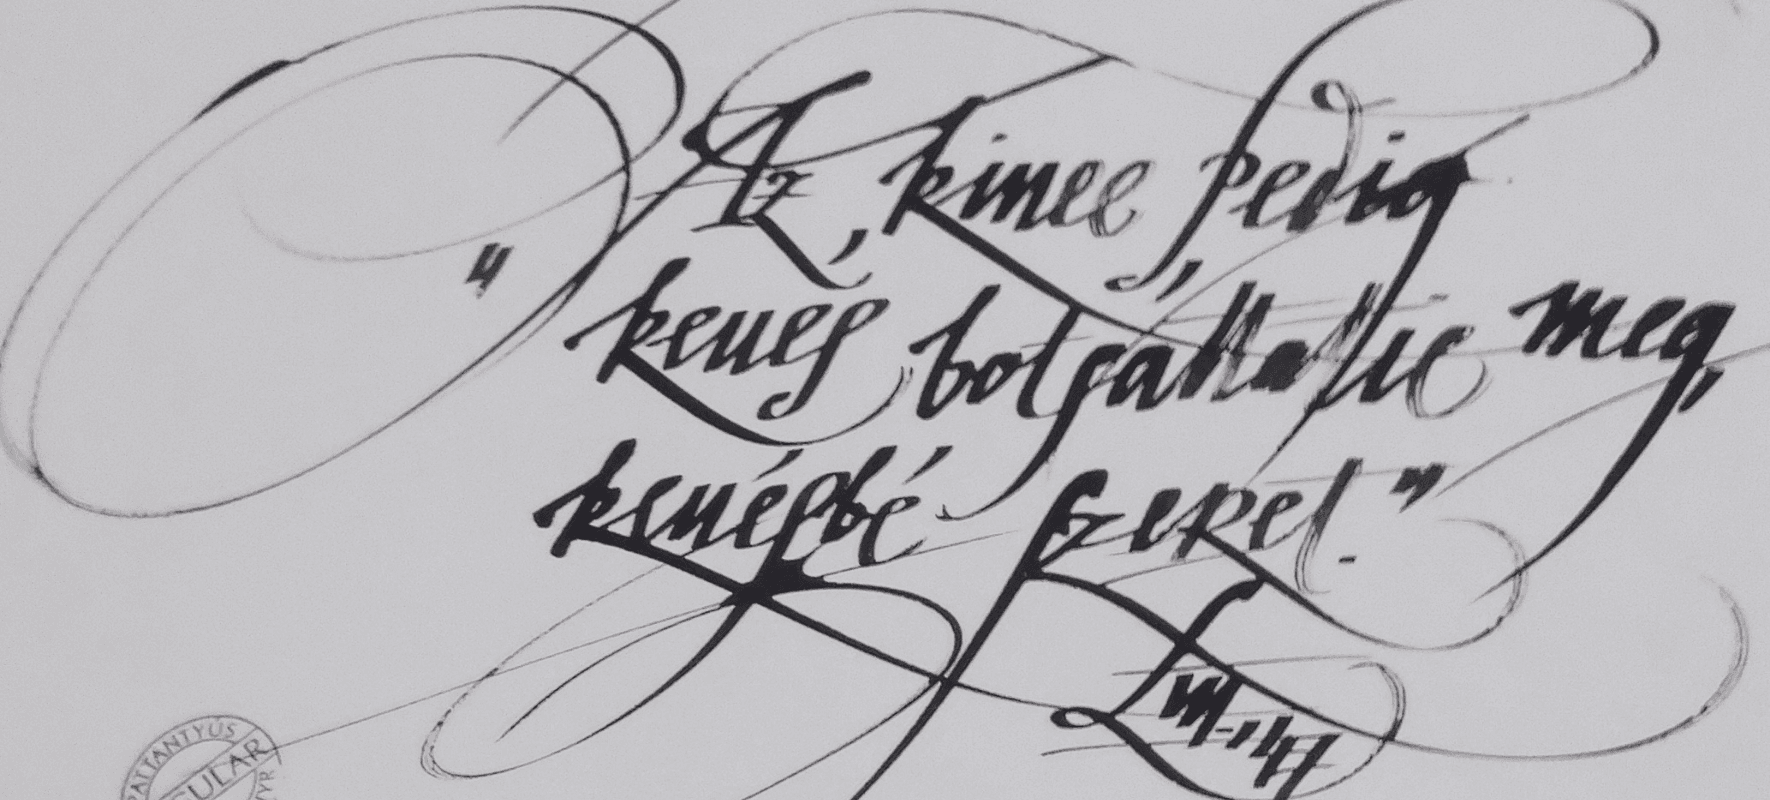 Az, kinec pedig,
"keues botsattatic meg,
keuésbé szeret."
PATTANTYÚS
GULAR